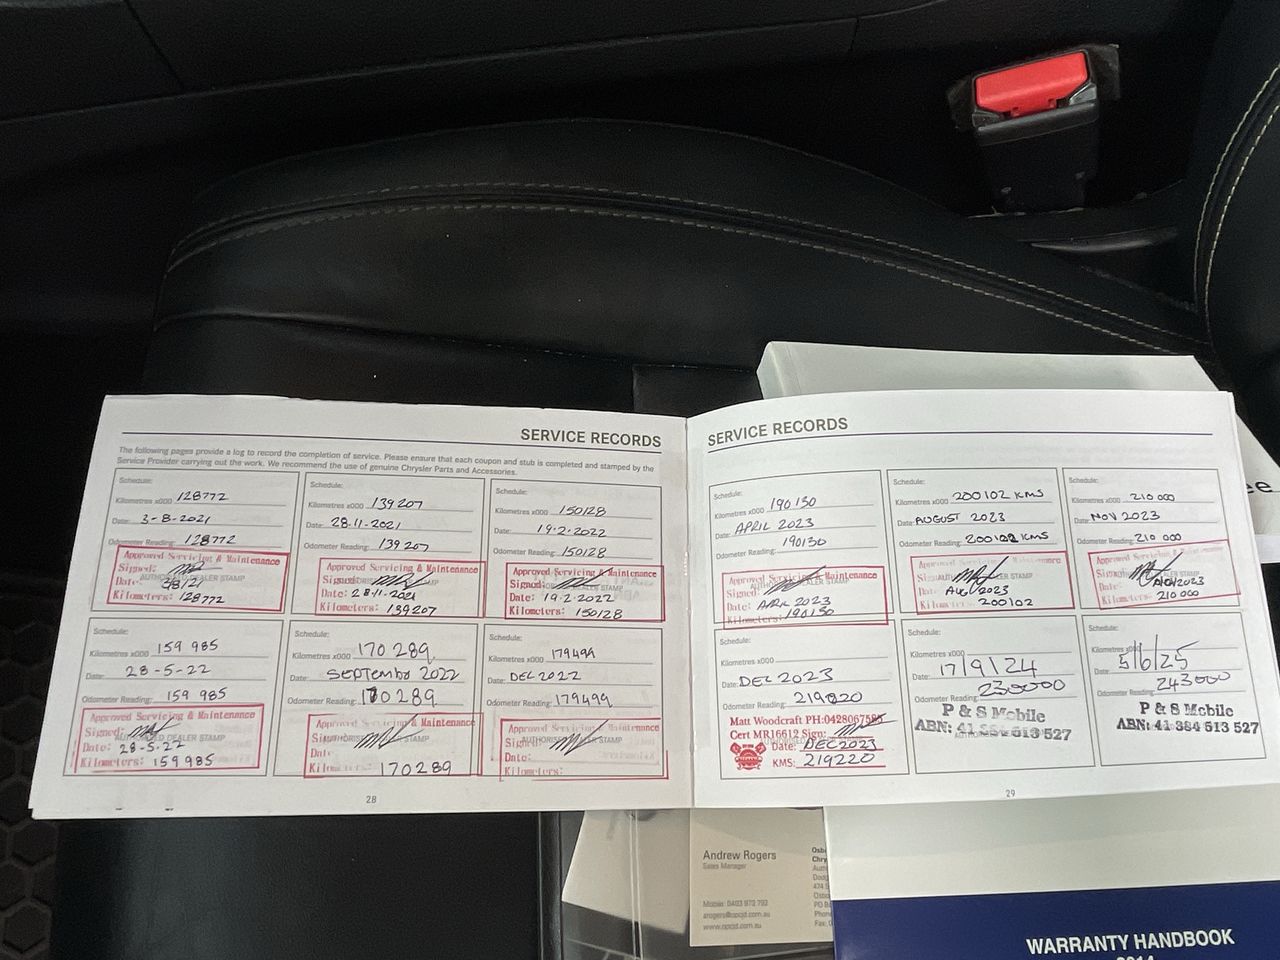 SERVICE RECORDS
The following pages provide a log to record the completion of service. Please ensure that each coupon and stub is completed and stamped by the
Service Provider carrying out the work. We recommend the use of genuine Chrysler Parts and Accessories.
Schedule:
Kilometres x000 128772
Date: 3-8-2021
Odometer Reading: 128772
Approved Servicing & Maintenance
Signed:
Date:
Kilometers: 128772
Schedule:
Kilometres x000 139207
Date: 28.11.2021
Odometer Reading: 139207
Approved Servicing & Maintenance
Signed:
Date: 28-11-2021
Kilometers: 139207
Schedule:
Kilometres x000 150128
Date: 19.2.2022
Odometer Reading: 150128
Approved Servicing & Maintenance
Signed:
Date: 19.2.2022
Kilometers: 150128
Schedule:
Kilometres x000 159 985
Date: 28-5-22
Odometer Reading: 159 985
Approved Servicing & Maintenance
Signed:
Date: 28-5-22
Kilometers: 159985
Schedule:
Kilometres x000 170 289
Date: 2022
Odometer Reading: 170289
Approved Servicing & Maintenance
170289
Schedule:
Kilometres x000 179499
Date: DEC 2022
Odometer Reading: 179499
Approved Servicing & Maintenance
Date:
Kilometers:
28
SERVICE RECORDS
Schedule:
Kilometres x000 190130
Date: APRIL 2023
Odometer Reading: 190130
Approved Servicing & Maintenance
Signed:
Date: APRIL 2023
Kilometers: 190130
Schedule:
Kilometres x000 200102 KMS
Date: AUGUST 2023
Odometer Reading: 200102 KMS
Approved Servicing & Maintenance
2023
200102
Schedule:
Kilometres x000 210 000
Date: NOV 2023
Odometer Reading: 210 000
Approved Servicing & Maintenance
210 000
Schedule:
Kilometres x000
Date: DEC 2023
Odometer Reading:
Matt Woodcraft PH:0428067585
Cert MR16612 Sign:
Date: DEC 2023
KMS: 219220
Schedule:
Kilometres x000
Date: 17/9/24
Odometer Reading: 230000
P & S Mobile
ABN: 41 384 513 527
Schedule:
Kilometres x000
Date: 5/6/25
Odometer Reading: 243000
P & S Mobile
ABN: 41 384 513 527
29
Andrew Rogers
Sales Manager
Mobile: 0403 972 793
arogers@opcjd.com.au
www.opcjd.com.au
WARRANTY HANDBOOK
2014